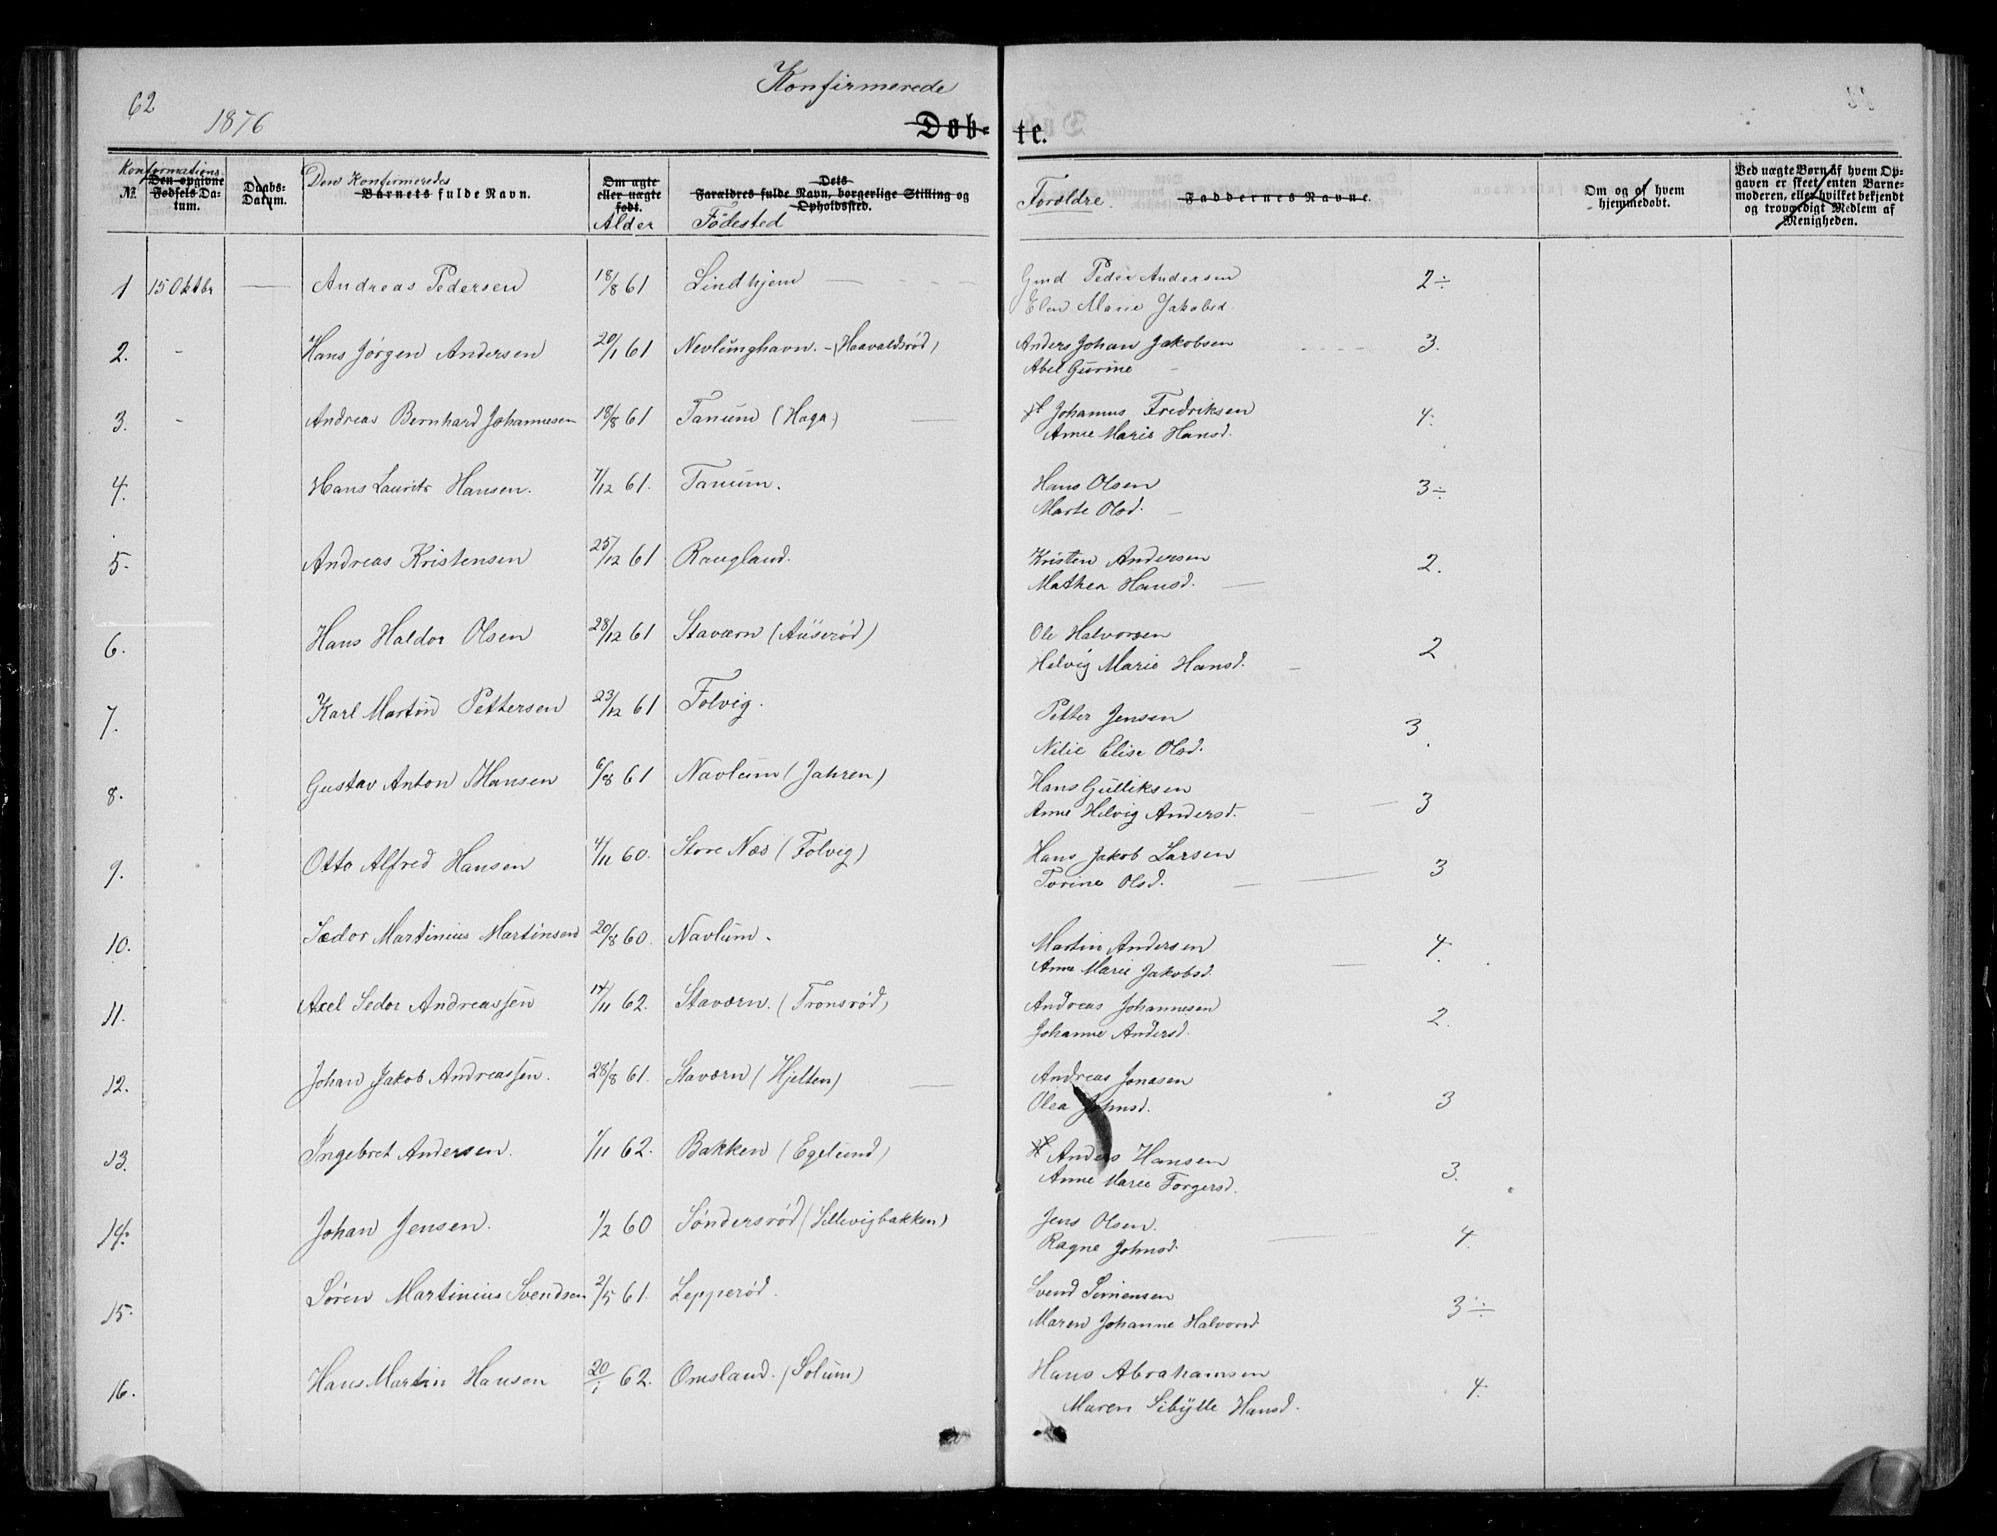 62
1876
Konfirmerede
Døb- te.
Konfirmations
No. Den opgivne Fødsels Datum. Daabs-Datum. Den Konfirmeredes Barnets fulde Navn. Om ægte eller uægte født. Alder Dets Forældres fulde Navn, borgerlige Stilling og Opholdssted. Fødested Forældre. Faddernes Navne. Om og af hvem hjemmedøbt. Ved uægte Børn af hvem Opgaven er skeet, enten Barnemoderen, eller hvilket bekjendt og troværdigt Medlem af Menigheden.
1 15 Oktbr — Andreas Pedersen 18/8 61 Lindhjem — Gmd Peder Andersen 2÷
Elen Marie Jakobsd
2. - Hans Jørgen Andersen 20/1 61 Nevlunghavn. - (Haavaldsrød) Anders Johan Jakobsen 3.
Abel Gurine -
3. - Andreas Bernhard Johannesen 18/8 61 Tanum (Haga) — Johannes Fredriksen 4.
Anne Marie Hansd.
4. Hans Lauritz Hansen. 7/12 61. Tanum. Hans Olsen 3÷
Marte Olsd. -
5. Andreas Kristensen 25/12 61 Raugland. Kristen Andersen 2.
Mathea Hansd. —
6. Hans Haldor Olsen 28/12 61 Staværn (Auserød) Ole Halvorsen 2
Helvig Marie Hansd. -
7. Karl Martin Pettersen 23/12 61 Folvig. Petter Jensen 3
Nilie Elise Olsd.
8. Gustav Anton Hansen 6/8 61 Navlum (Jahren) Hans Gulliksen 3
Anne Helvig Andersd. -
9. Otto Alfred Hansen 4/11 60. Store Næs (Folvig) Hans Jakob Larsen 3
Torine Olsd. —
10. Sedor Martinius Martinsen 20/8 60. Navlum. Martin Andersen 4.
Anne Marie Jakobsd. —
11. Axel Sedor Andreassen 14/11 62. Staværn. (Tronsrød) Andreas Johannesen 2.
Johanne Andersd.
12. Johan Jakob Andreassen. 28/8 61. Staværn (Hjelten) — Andreas Jonasen 3
Olea Johnsd.
13. Ingebret Andersen. 1/11 62. Bakken (Egelund) Anders Hansen 3.
Anne Marie Torgersd.
14. Johan Jensen. 1/2 60 Søndersrød (Sillevigbakken) Jens Olsen. 4.
Ragne Johnsd. —
15. Søren Martinius Svendsen 2/5 61. Lepperød. Svend Simensen 3÷
Maren Johanne Halvorsd.
16. Hans Martin Hansen 20/1 62. Omsland. (Solum) Hans Abrahamsen 4.
Maren Sibylle Hansd.